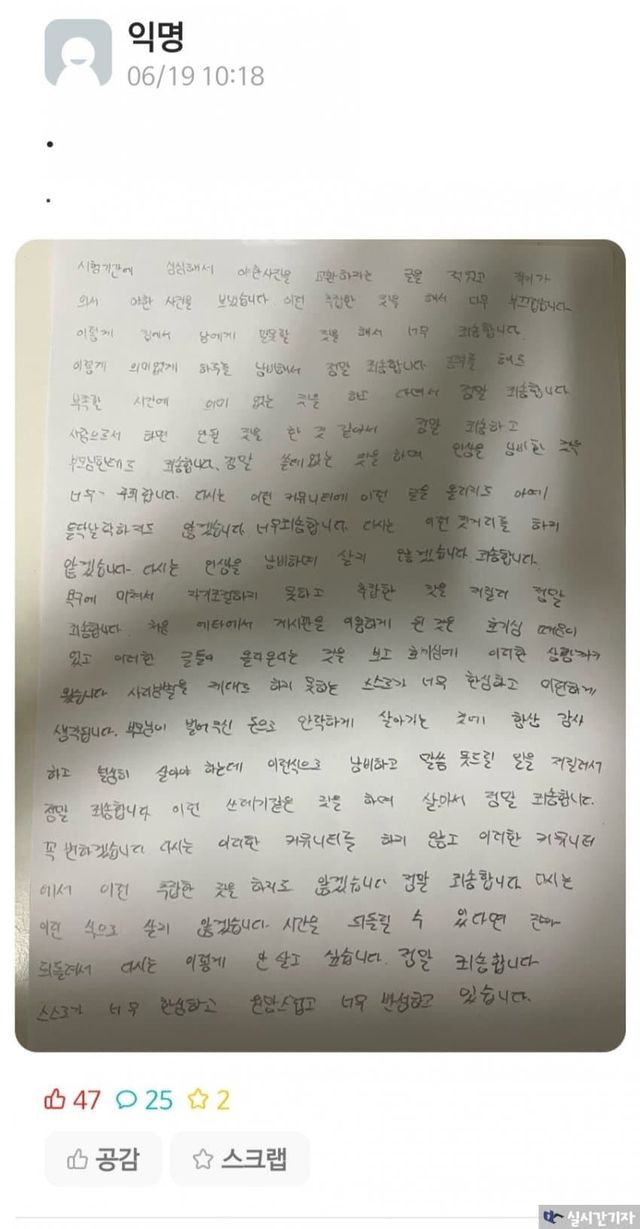 익명
06/19 10:18
.
.
시험기간에 심심해서 야한사진을 교환하자는 글을 적었고 적이가
의서 야한 사진을 보냈습니다. 이런 추잡한 짓을 해서 너무 부끄럽습니다.
이렇게 집에서 남에게 말못할 짓을 해서 너무 죄송합니다.
이렇게 의미없게 하루를 낭비해서 정말 죄송합니다 공부를 해도
부족할 시간에 의미 없는 짓을 하고 다녀서 정말 죄송합니다
사람으로서 하면 안될 짓을 한 것 같아서 정말 죄송하고
부모님한테도 죄송합니다. 정말 쓸데없는 짓을 하며 인생을 낭비한 것을
너무 후회합니다. 다시는 이런 커뮤니티에 이런 글을 올리지도 아예
들락날락하지도 않겠습니다 너무죄송합니다. 다시는 이런 짓거리를 하지
않겠습니다. 다시는 인생을 낭비하며 살지 않겠습니다. 죄송합니다.
욕구에 미쳐서 자기조절하지 못하고 추잡한 짓을 저질러 정말
죄송합니다. 처음 에타에서 게시판을 이용하게 된 것은 호기심 때문이
었고 이러한 글들이 올라온다는 것을 보고 호기심에 이러한 상황까지
왔습니다 사리분별을 제대로 하지 못하는 스스로가 너무 한심하고 미련하게
생각됩니다. 부모님이 벌어주신 돈으로 안락하게 살아가는 것에 항상 감사
하고 열심히 살아야 하는데 이런식으로 낭비하고 말씀 못드릴 일을 저질러서
정말 죄송합니다 이런 쓰레기같은 짓을 하며 살아서 정말 죄송합니다.
꼭 변하겠습니다 다시는 이러한 커뮤니티를 하지 않고 이러한 커뮤니티
에서 이런 추잡한 짓을 하지도 않겠습니다 정말 죄송합니다 다시는
이런 식으로 살지 않겠습니다. 시간을 되돌릴 수 있다면
되돌려서 다시는 이렇게 안 살고 싶습니다. 정말 죄송합니다
스스로가 너무 한심하고 원망스럽고 너무 반성하고 있습니다.
47 25 2
공감 스크랩
실시간기자